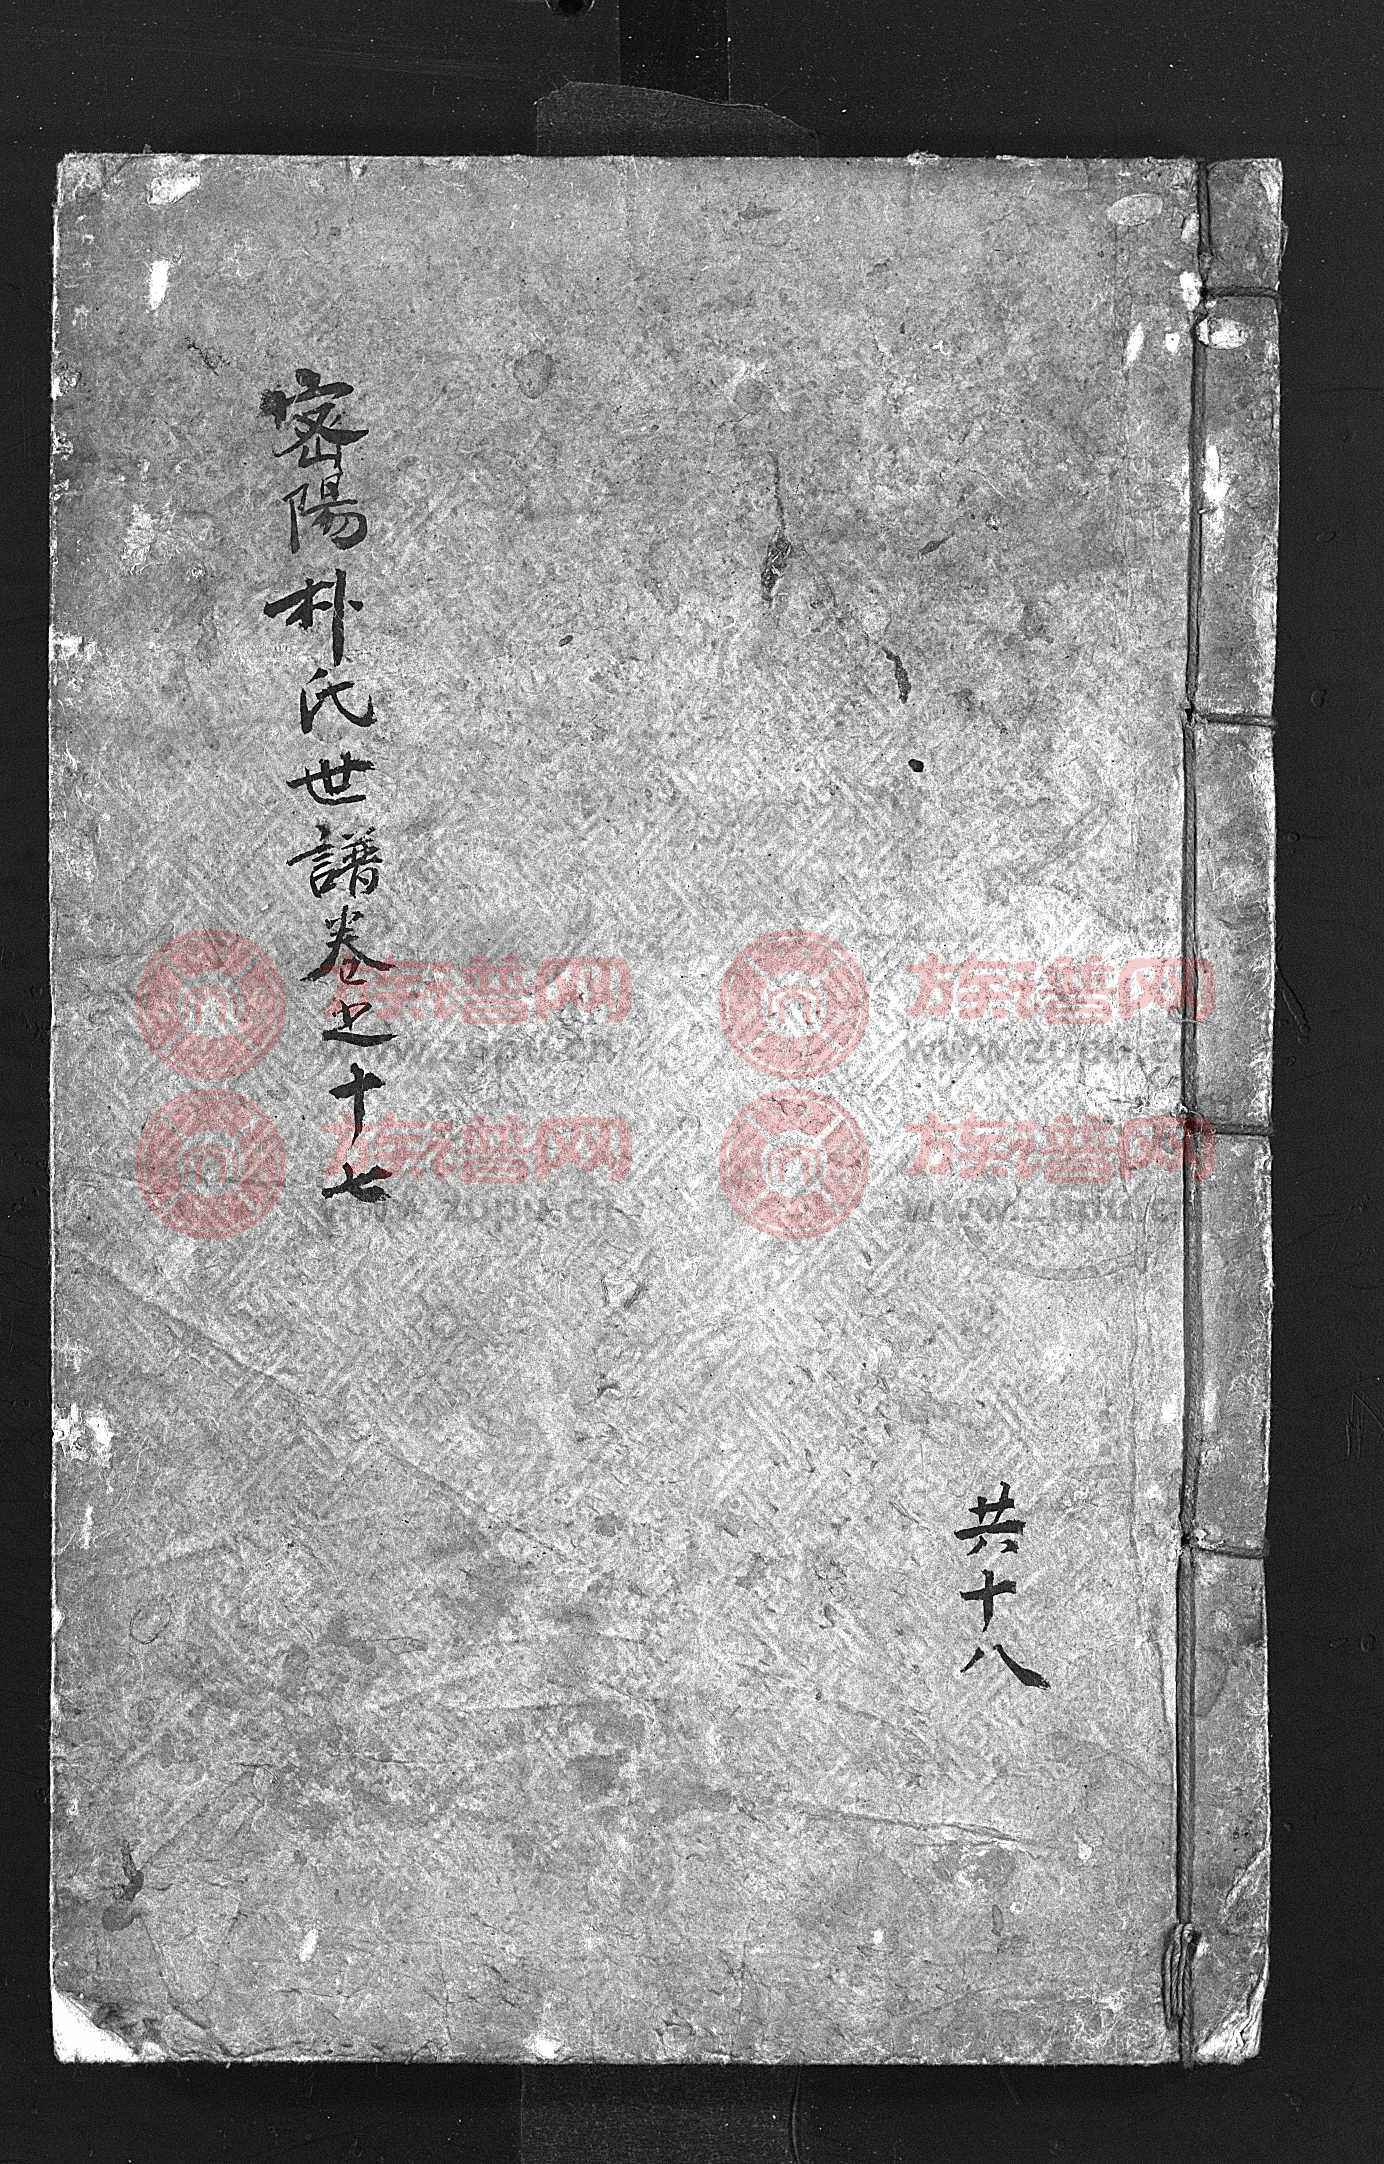 共十八
密陽朴氏世譜卷之十七
族谱网
www.zupu.cn
族谱网
www.zupu.cn
族谱网
www.zupu.cn
族谱网
www.zupu.cn